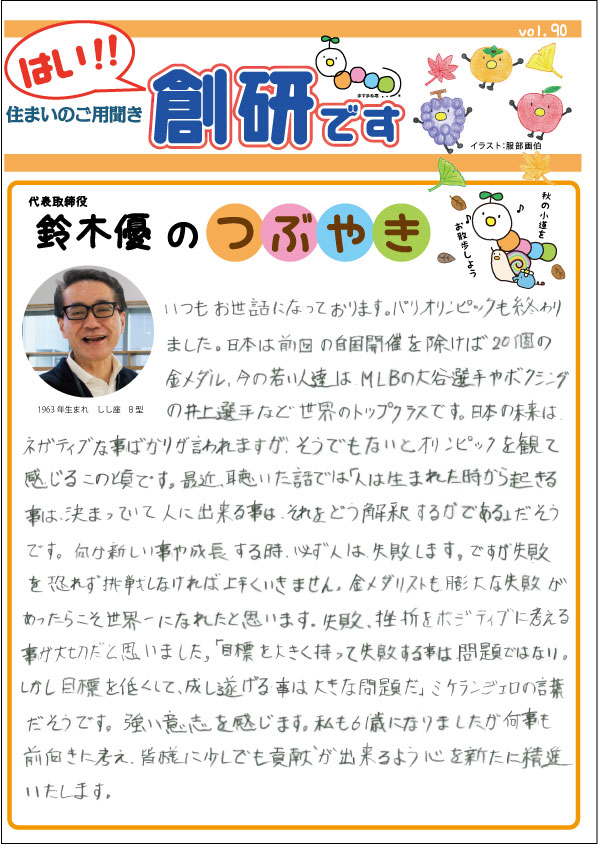 vol.90
はい!!
住まいのご用聞き
創研です
イラスト:服部画伯
代表取締役
鈴木優のつぶやき
秋の小道を
お散歩しよう
1963年生まれ しし座 B型
いつもお世話になっております。パリオリンピックも終わり
ました。日本は前回の自国開催を除けば20個の
金メダル、今の若い人達は、MLBの大谷選手やボクシング
の井上選手など世界のトップクラスです。日本の未来は、
ネガティブな事ばかりが言われますが、そうでもないと、オリンピックを観て
感じるこの頃です。最近、聴いた話では「人は生まれた時から起きる
事は、決まっていて人に出来る事は、それをどう解釈するかである」だそう
です。何か新しい事や成長する時、必ず人は、失敗します。ですが失敗
を恐れず挑戦しなければ上手くいきません。金メダリストも、膨大な失敗が
あったらこそ世界一になれたと思います。失敗、挫折をポジティブに考える
事が大切だと思いました。「目標を大きく持って失敗する事は問題ではない。
しかし目標を低くして、成し遂げる事は大きな問題だ」ミケランジェロの言葉
だそうです。強い意志を感じます。私も61歳になりましたが何事も
前向きに考え、皆様に少しでも貢献が出来るよう心を新たに精進
いたします。